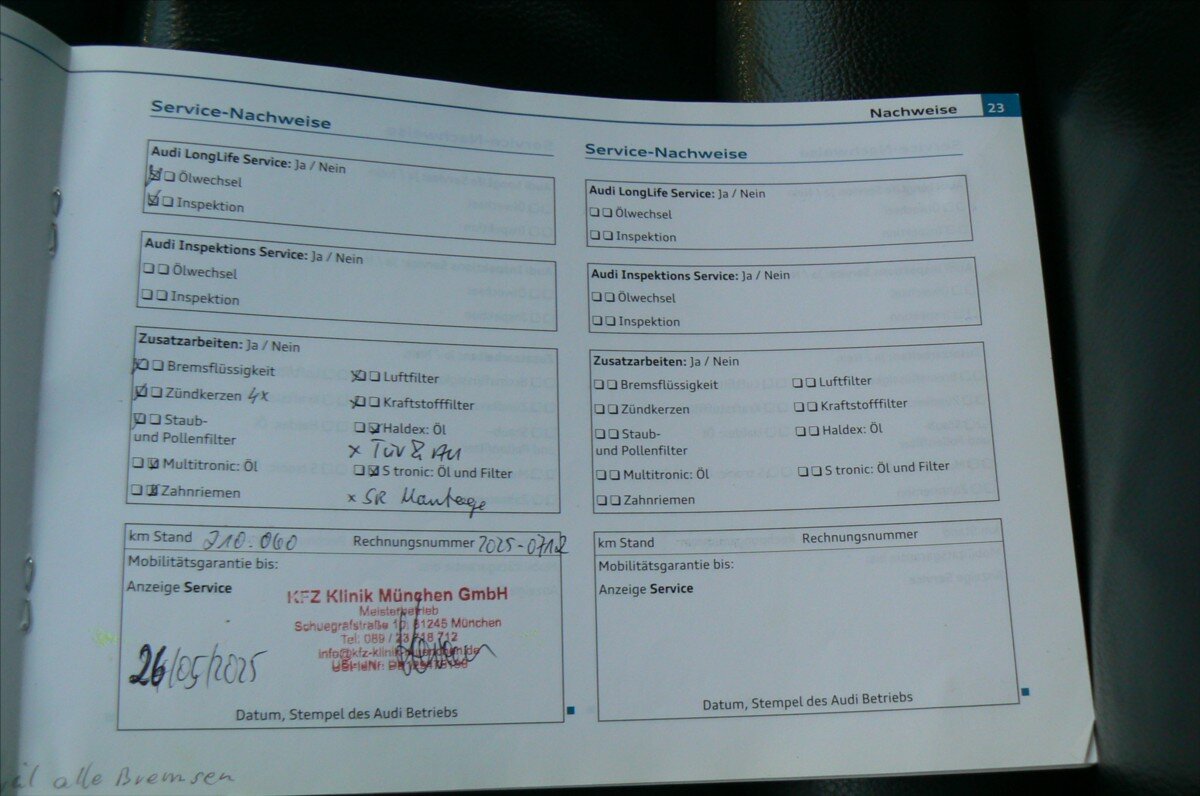 Nachweise 23
Service-Nachweise
Audi LongLife Service: Ja / Nein
Ölwechsel
Inspektion
Audi Inspektions Service: Ja / Nein
Ölwechsel
Inspektion
Zusatzarbeiten: Ja / Nein
Bremsflüssigkeit
Zündkerzen 4x
Staub-
und Pollenfilter
Multitronic: Öl
Zahnriemen
Luftfilter
Kraftstofffilter
Haldex: Öl
x TÜV & AU
S tronic: Öl und Filter
x SR Montage
km Stand 210.060 Rechnungsnummer 2025-0712
Mobilitätsgarantie bis:
Anzeige Service
KFZ Klinik München GmbH
Meisterbetrieb
Schuegrafstraße 10, 81245 München
Tel: 089 / 23 718 712
info@kfz-klinik-muenchen.de
26/05/2025
Datum, Stempel des Audi Betriebs
alle Bremsen
Service-Nachweise
Audi LongLife Service: Ja / Nein
Ölwechsel
Inspektion
Audi Inspektions Service: Ja / Nein
Ölwechsel
Inspektion
Zusatzarbeiten: Ja / Nein
Bremsflüssigkeit
Zündkerzen
Staub-
und Pollenfilter
Multitronic: Öl
Zahnriemen
Luftfilter
Kraftstofffilter
Haldex: Öl
S tronic: Öl und Filter
km Stand Rechnungsnummer
Mobilitätsgarantie bis:
Anzeige Service
Datum, Stempel des Audi Betriebs